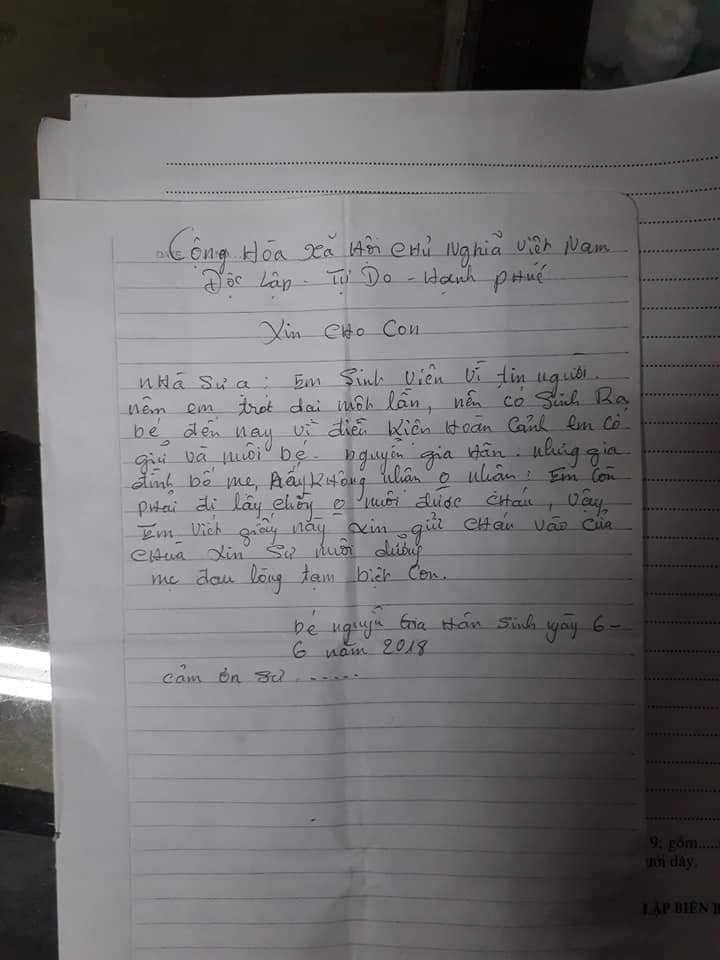 Cộng Hòa Xã Hội Chủ Nghĩa Việt Nam
Độc Lập - Tự Do - Hạnh Phúc
Xin Cho Con
Nhà Sư ạ: Em Sinh Viên Vì tin người.
nên em trót dại một lần, nên có Sinh Ra
bé đến nay vì điều kiện Hoàn Cảnh em cố
giữ và nuôi bé - nguyễn gia Hân. nhưng gia
đình bố mẹ, không nhận o nhận: Em Còn
phải đi lấy chồng o nuôi được cháu, vậy
Em viết giấy này xin gửi cháu vào cửa
chùa xin Sư nuôi dưỡng
mẹ đau lòng tạm biệt con.
bé nguyễn Gia Hân Sinh ngày 6-
6 năm 2018
cảm ơn sư ......
9; gồm....
ưới đây.
LẬP BIÊN B